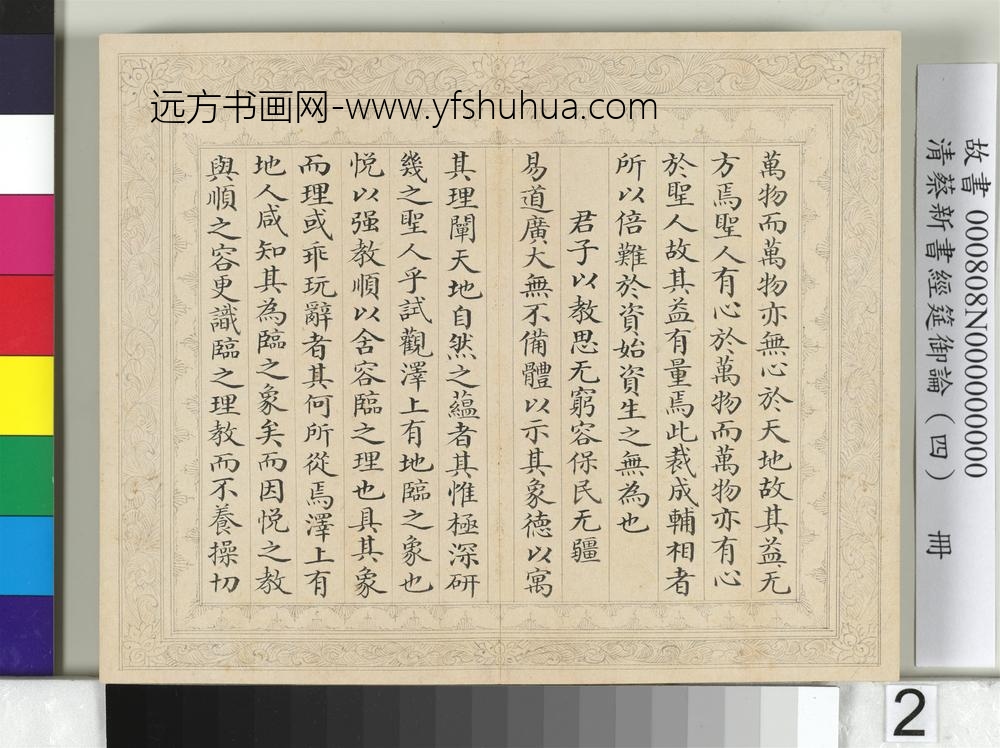 远方书画网-www.yfshuhua.com
萬物而萬物亦無心於天地故其益无
方焉聖人有心於萬物而萬物亦有心
於聖人故其益有量焉此裁成輔相者
所以倍難於資始資生之無為也
君子以教思无窮容保民无疆
易道廣大無不備體以示其象德以寓
其理闡天地自然之蘊者其惟極深研
幾之聖人乎試觀澤上有地臨之象也
悦以强教順以舍容臨之理也具其象
而理或乖玩辭者其何所從焉澤上有
地人咸知其為臨之象矣而因悦之教
與順之容更識臨之理教而不養操切
故書 000808N000000000
清蔡新書經筵御論（四） 冊
2